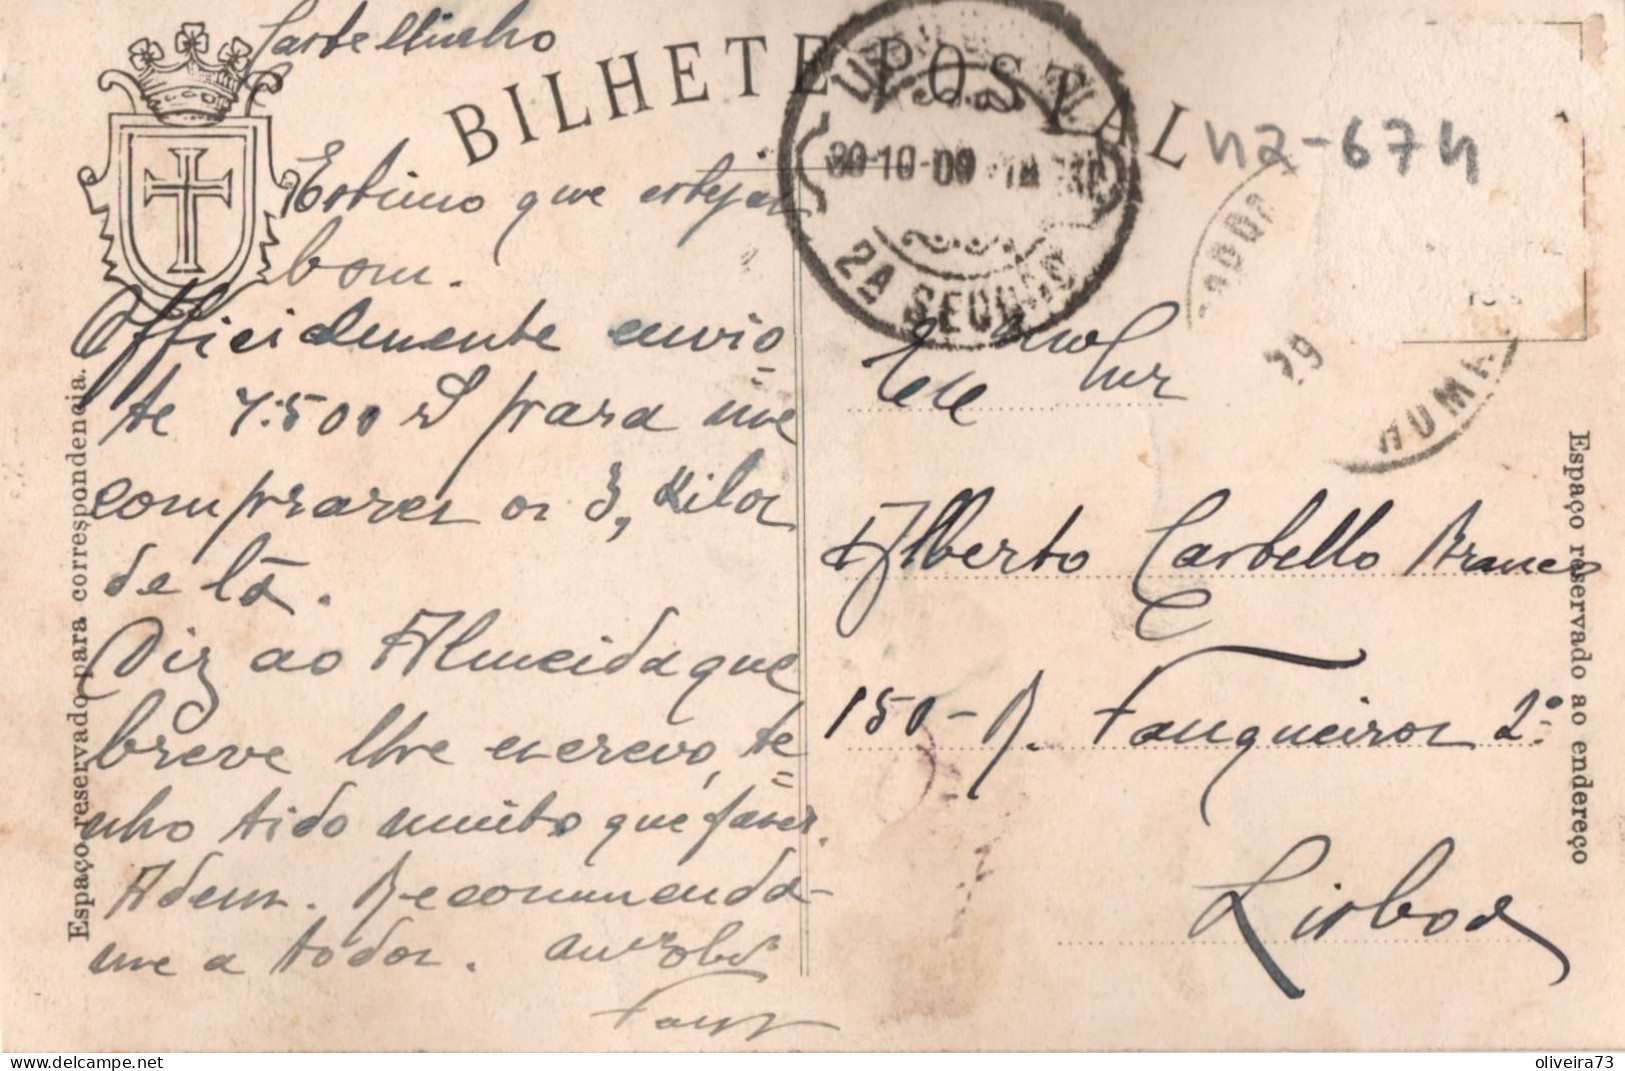 Castellinho
BILHETE POSTAL
42-674
Estimo que estejas
bom.
Officialmente envio=
te 7:500 rs para me
comprares os 3, Kilos
de lã.
Diz ao Almeida que
breve lhe escrevo, te=
nho tido muito que fazer.
Adeus. Recommenda-
me a todos. am.º obd.º
Espaço reservado para correspondencia.
30-10-09
2A SECÇÃO
29
Alberto Castello Branco
150 - R. Fanqueiros 2º
Lisboa
Espaço reservado ao endereço
oliveira73